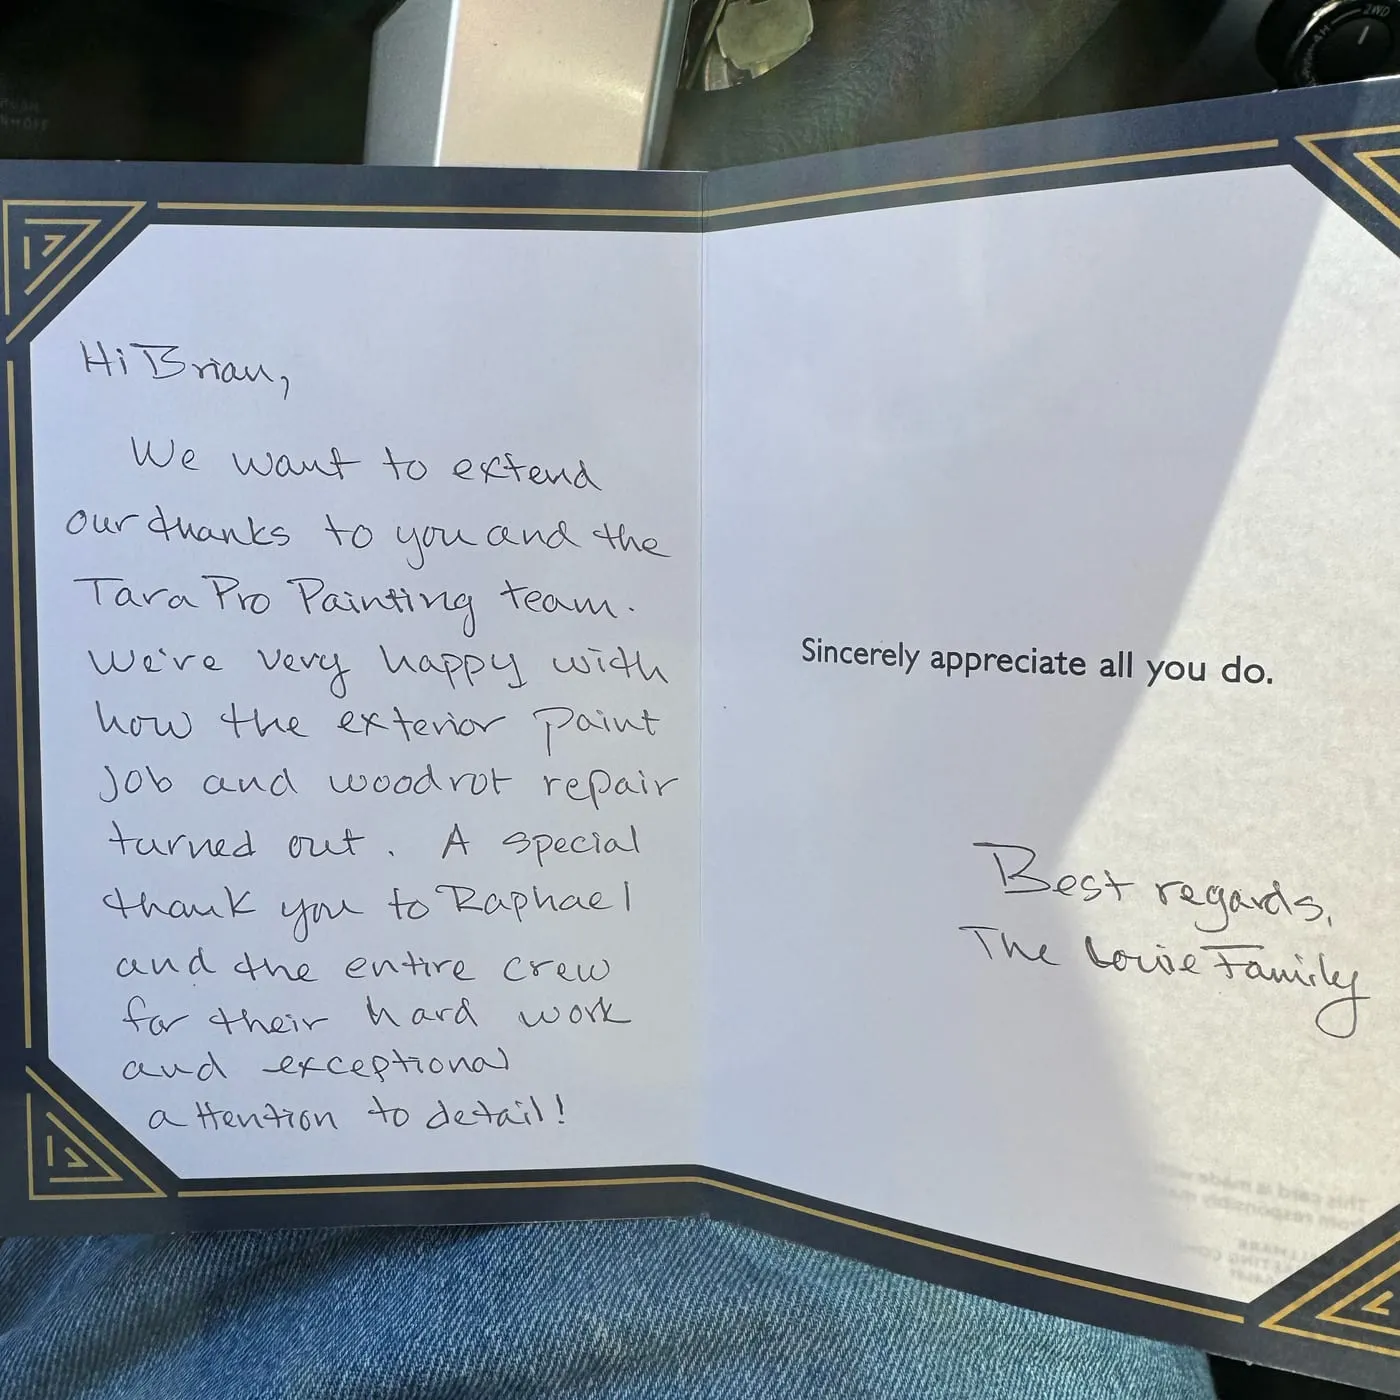 Hi Brian,
We want to extend
our thanks to you and the
Tara Pro Painting team.
We're very happy with
how the exterior paint
job and woodrot repair
turned out. A special
thank you to Raphael
and the entire crew
for their hard work
and exceptional
attention to detail!
Sincerely appreciate all you do.
Best regards,
The Lowe Family
2WD